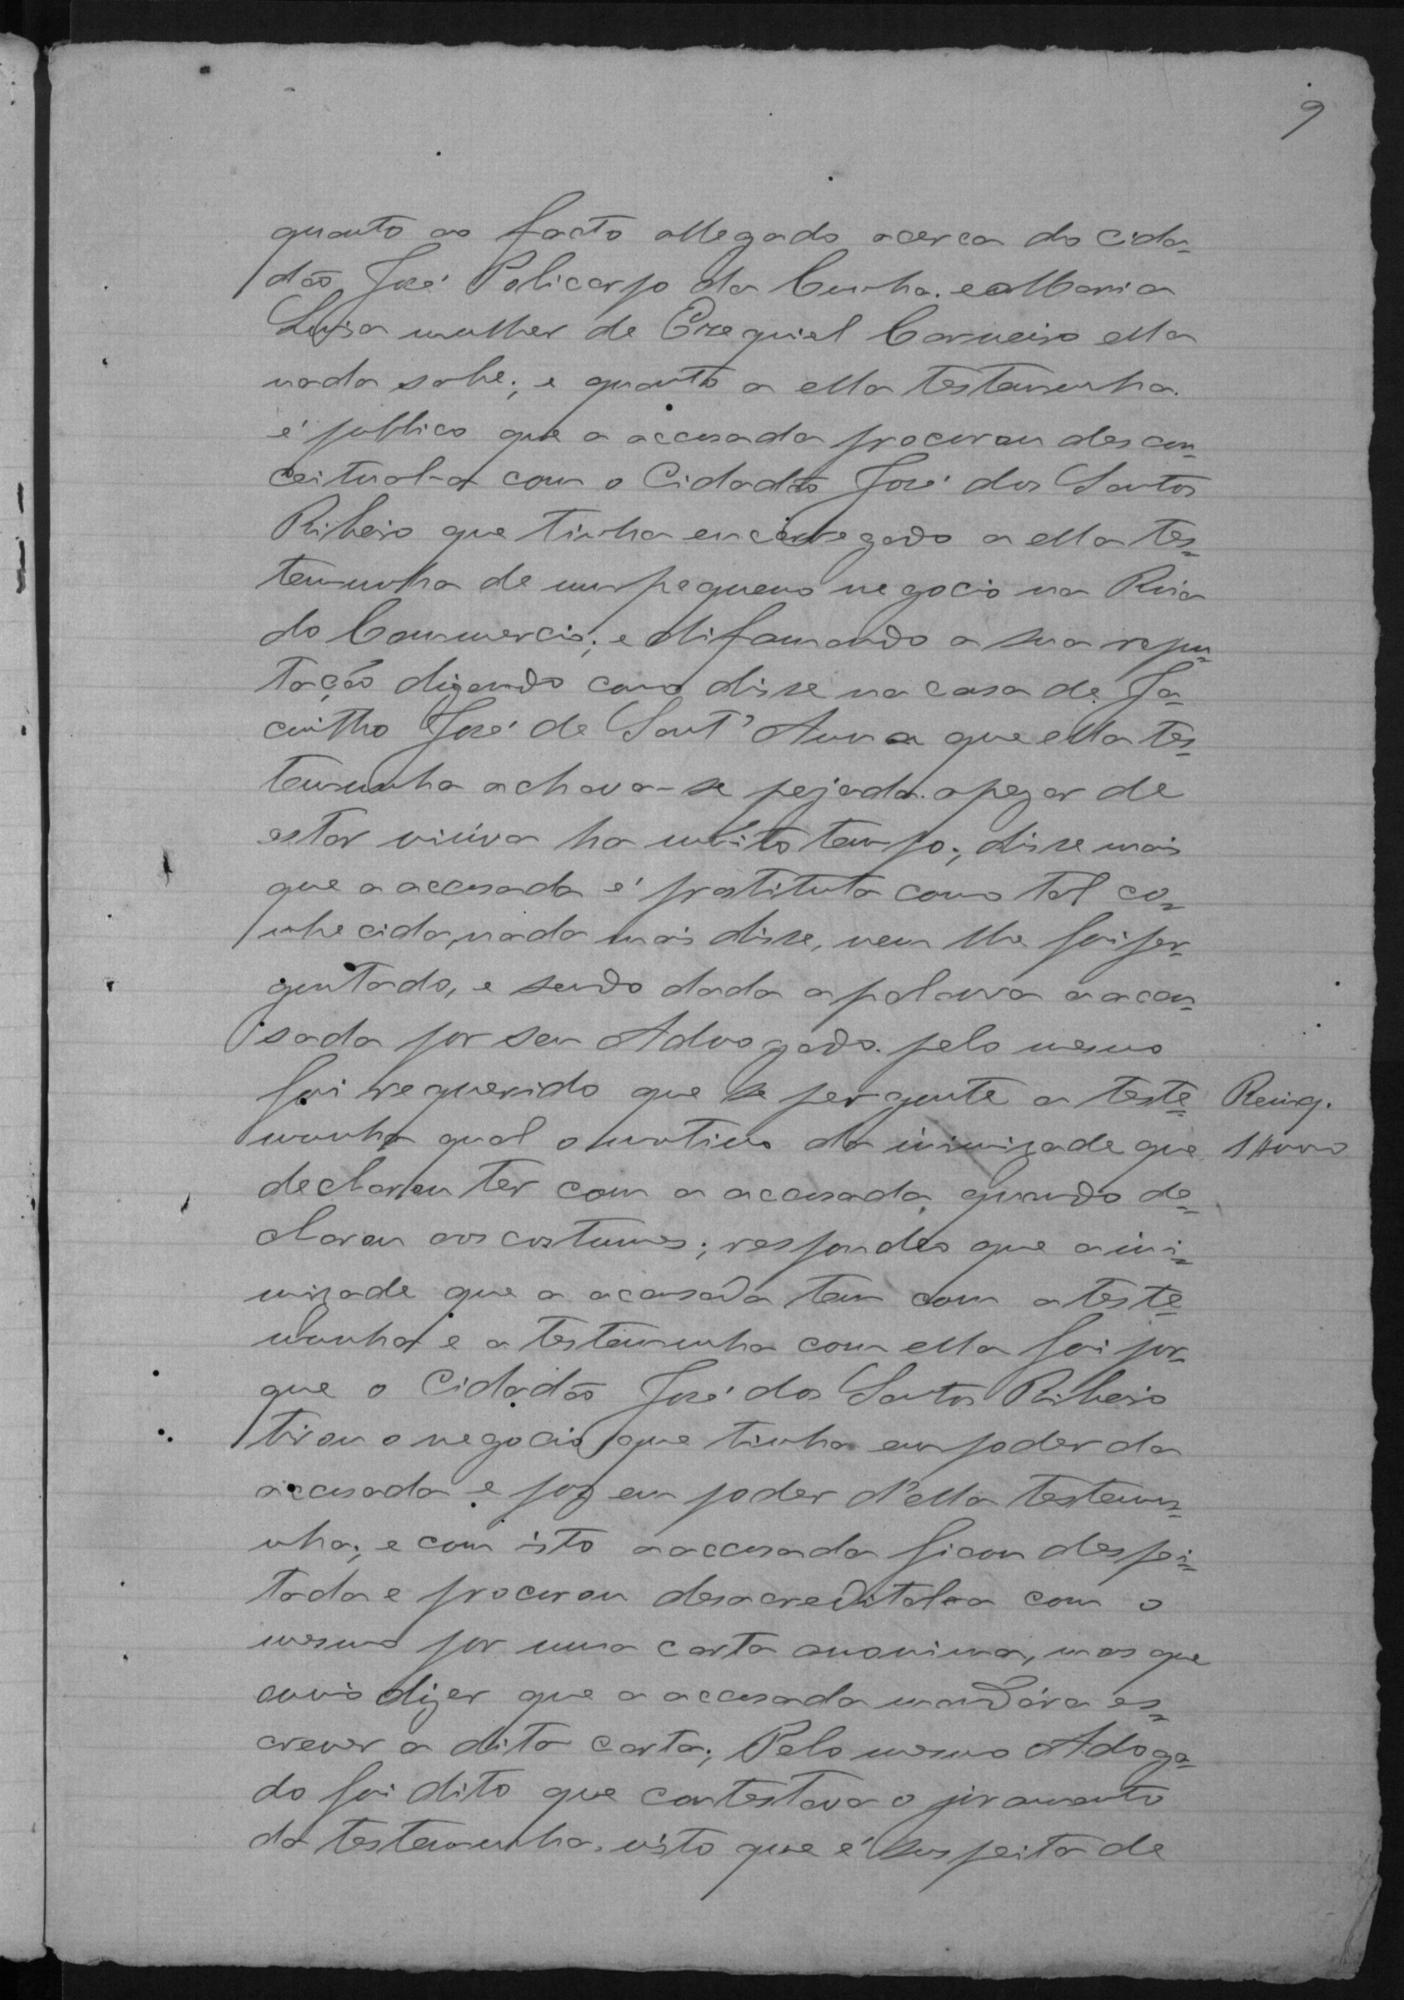 9
quanto ao facto allegado acerca do cida-
dão José Policarpo da Cunha. e a Maria
Luisa mulher de Ezequiel Carneiro ella
nada sabe; e quanto a ella testemunha.
é publico que a accusada procurou descon-
ceitual-a com o Cidadão José dos Santos
Ribeiro que tinha encarregado a ella tes-
temunha de um pequeno negocio na Rua
do Commercio; e difamando a sua repu-
tação dizendo como disse na casa de Ja-
cintho José de Sant' Anna que ella tes-
temunha achava-se pejada. apezar de
estar viúva ha muito tempo; disse mais
que a accusada é prostituta como tal co-
nhecida, nada mais disse, nem lhe foi per-
guntado, e sendo dada a palavra a accu-
sada por seu Advogado. pelo mesmo
foi requerido que se pergunte a teste-
Reinq.
munha qual o motivo da inimizade que
declarou ter com a accusada, quando de-
clarou aos costumes; respondeo que a ini-
mizade que a accusada tem com a teste-
munha e a testemunha com ella foi por-
que o Cidadão José dos Santos Ribeiro
tirou o negocio que tinha em poder da
accusada e poz em poder d'ella testemu-
nha; e com isto a accusada ficou despei-
tada e procurou desacreditala com o
mesmo por uma carta anonima, mas que
ouvio dizer que a accusada mandára es-
crever a dita carta; Pelo mesmo Adoga-
do foi dito que contestava o juramento
da testemunha. visto que é suspeita de